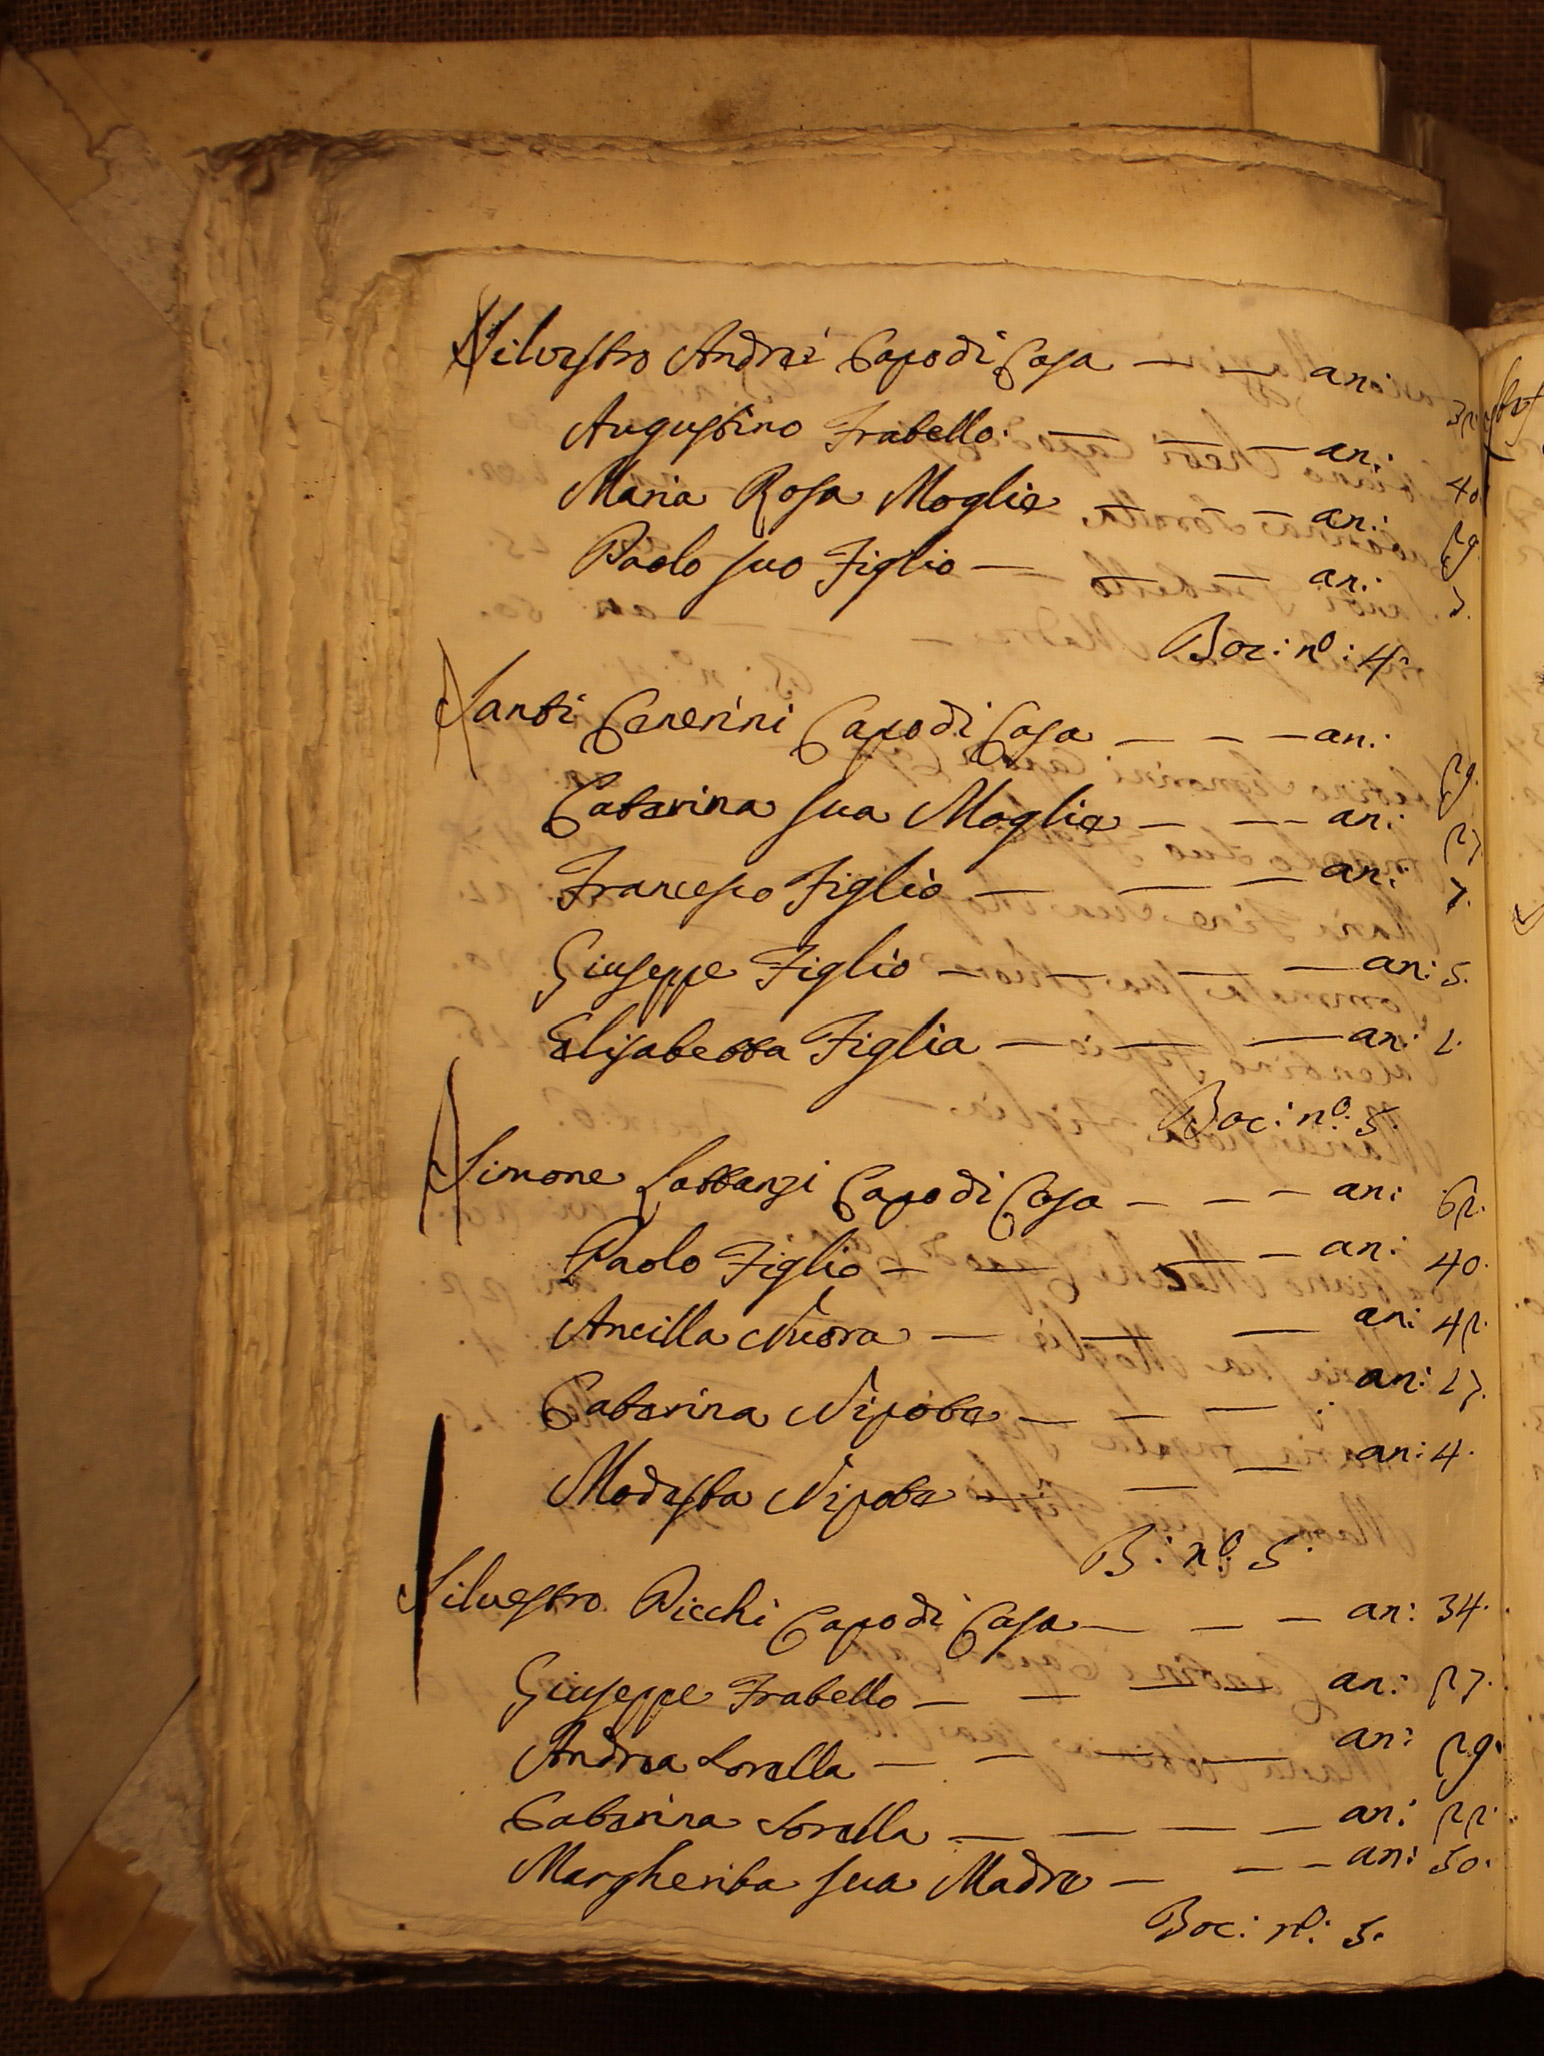 Silvestro Andrei Capo di Casa — — an: 32.
Augustino Fratello. — — — an: 40
Maria Rosa Moglie — — an: 29
Paolo suo Figlio — — — an: 7.
Boc: nº: 4.
Santi Cenerini Capo di Casa — — — an: 29.
Catarina sua Moglie — — — an: 27
Francesco Figlio — — — an: 7.
Giuseppe Figlio — — — — an: 5.
Elisabetta Figlia — — — an: 1.
Boc: nº: 5.
Simone Lattanzi Capo di Casa — — — an: 62.
Paolo Figlio — — — — an: 40.
Ancilla Nuora — — — an: 42.
Catarina Nipote — — — an: 17.
Modesta Nipote — — — an: 4.
B: nº: 5.
Silvestro Picchi Capo di Casa — — — an: 34.
Giuseppe Fratello — — — — an: 27.
Andrea Sorella — — — — an: 29.
Catarina Sorella — — — — an: 22.
Margherita sua Madre — — — an: 50.
Boc: nº: 5.